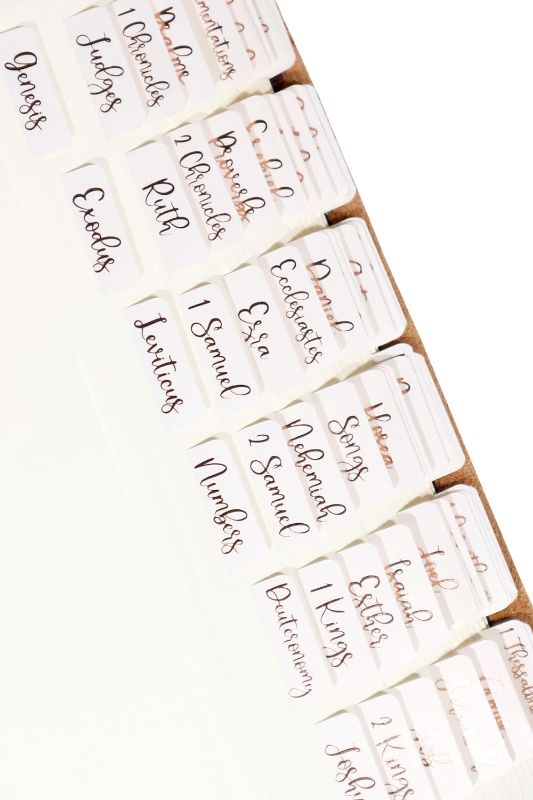 Genesis
Judges
1 Chronicles
Psalms
Exodus
Ruth
2 Chronicles
Proverbs
Ezekiel
Leviticus
1 Samuel
Ezra
Ecclesiastes
Daniel
Numbers
2 Samuel
Nehemiah
Songs
Hosea
Deuteronomy
1 Kings
Esther
Isaiah
Joel
Joshu
2 Kings
Job
1 Thessalon